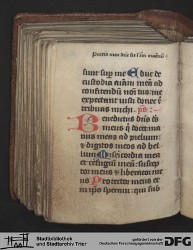 sunt sup me Educ de
custodia aīam meā ad
confitendū noī tuo me
expectant iusti donec
tribuas michi
Benedictus dūs
meus q docet ma
nus meas ad prelium:
et digitos meos ad bel
lum Misericordia mea
et refugiū meū: suscep
tor meus et liberator me
us Protector meus et
in ipo speraui: qui sub
Stadtbibliothek
und Stadtarchiv Trier
gefördert von der
Deutschen Forschungsgemeinschaft
DFG